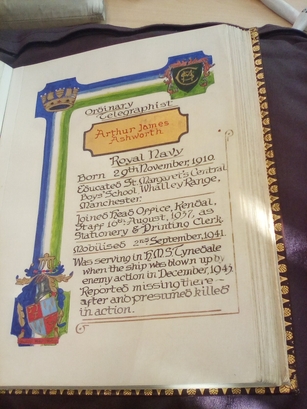 Ordinary
Telegraphist
Arthur James
Ashworth.
Royal Navy
Born 29th November, 1910.
Educated St. Margaret's Central
Boys' School Whalley Range,
Manchester.
Joined Head Office, Kendal,
Staff 16th August, 1937, as
Stationery & Printing Clerk.
Mobilised 2nd September, 1941.
Was serving in H.M.S. Tynedale
when the ship was blown up by
enemy action in December, 1943.
Reported missing there-
after and presumed killed
in action.